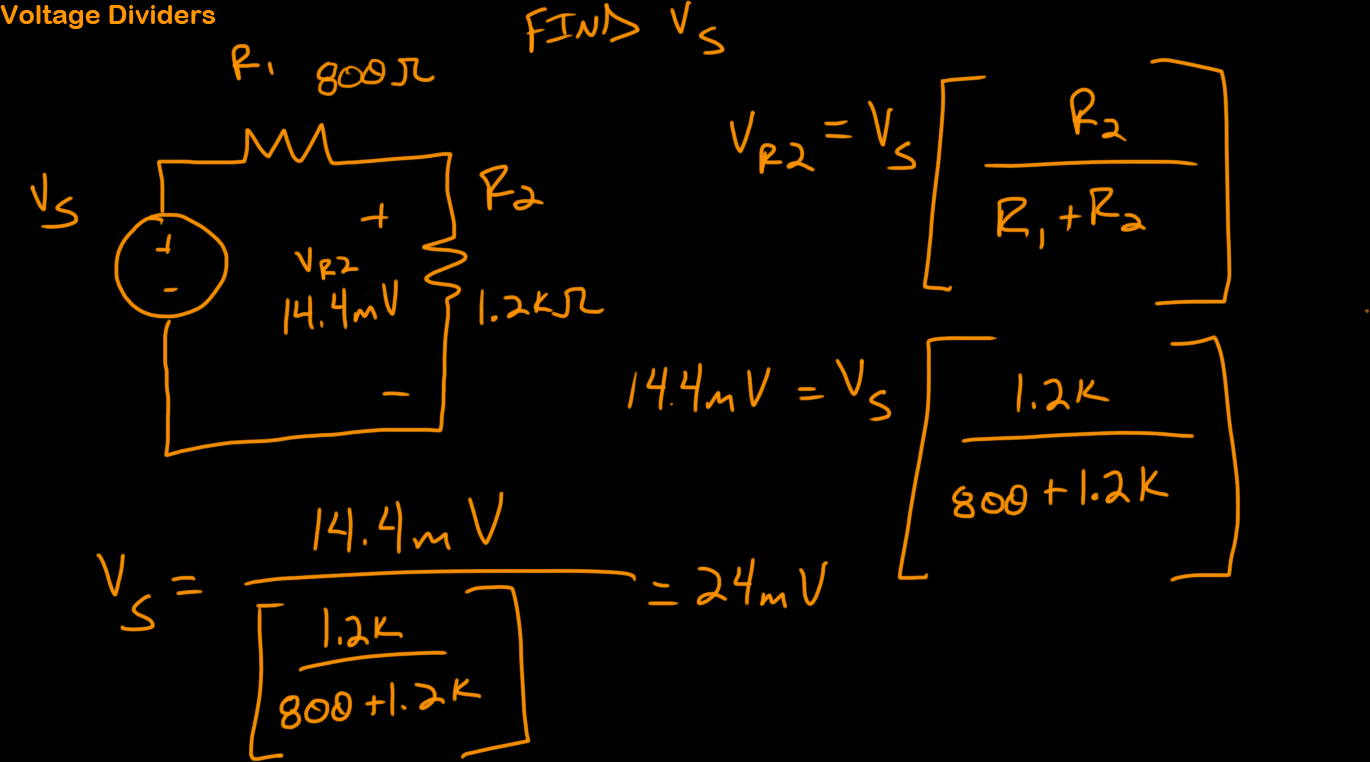 Voltage Dividers
FIND VS
R1 800Ω
VS
+
-
+
VR2
14.4mV
-
R2
1.2KΩ
VR2 = VS [ R2 / R1 + R2 ]
14.4mV = VS [ 1.2K / 800 + 1.2K ]
VS = 14.4mV / [ 1.2K / 800 + 1.2K ] = 24mV